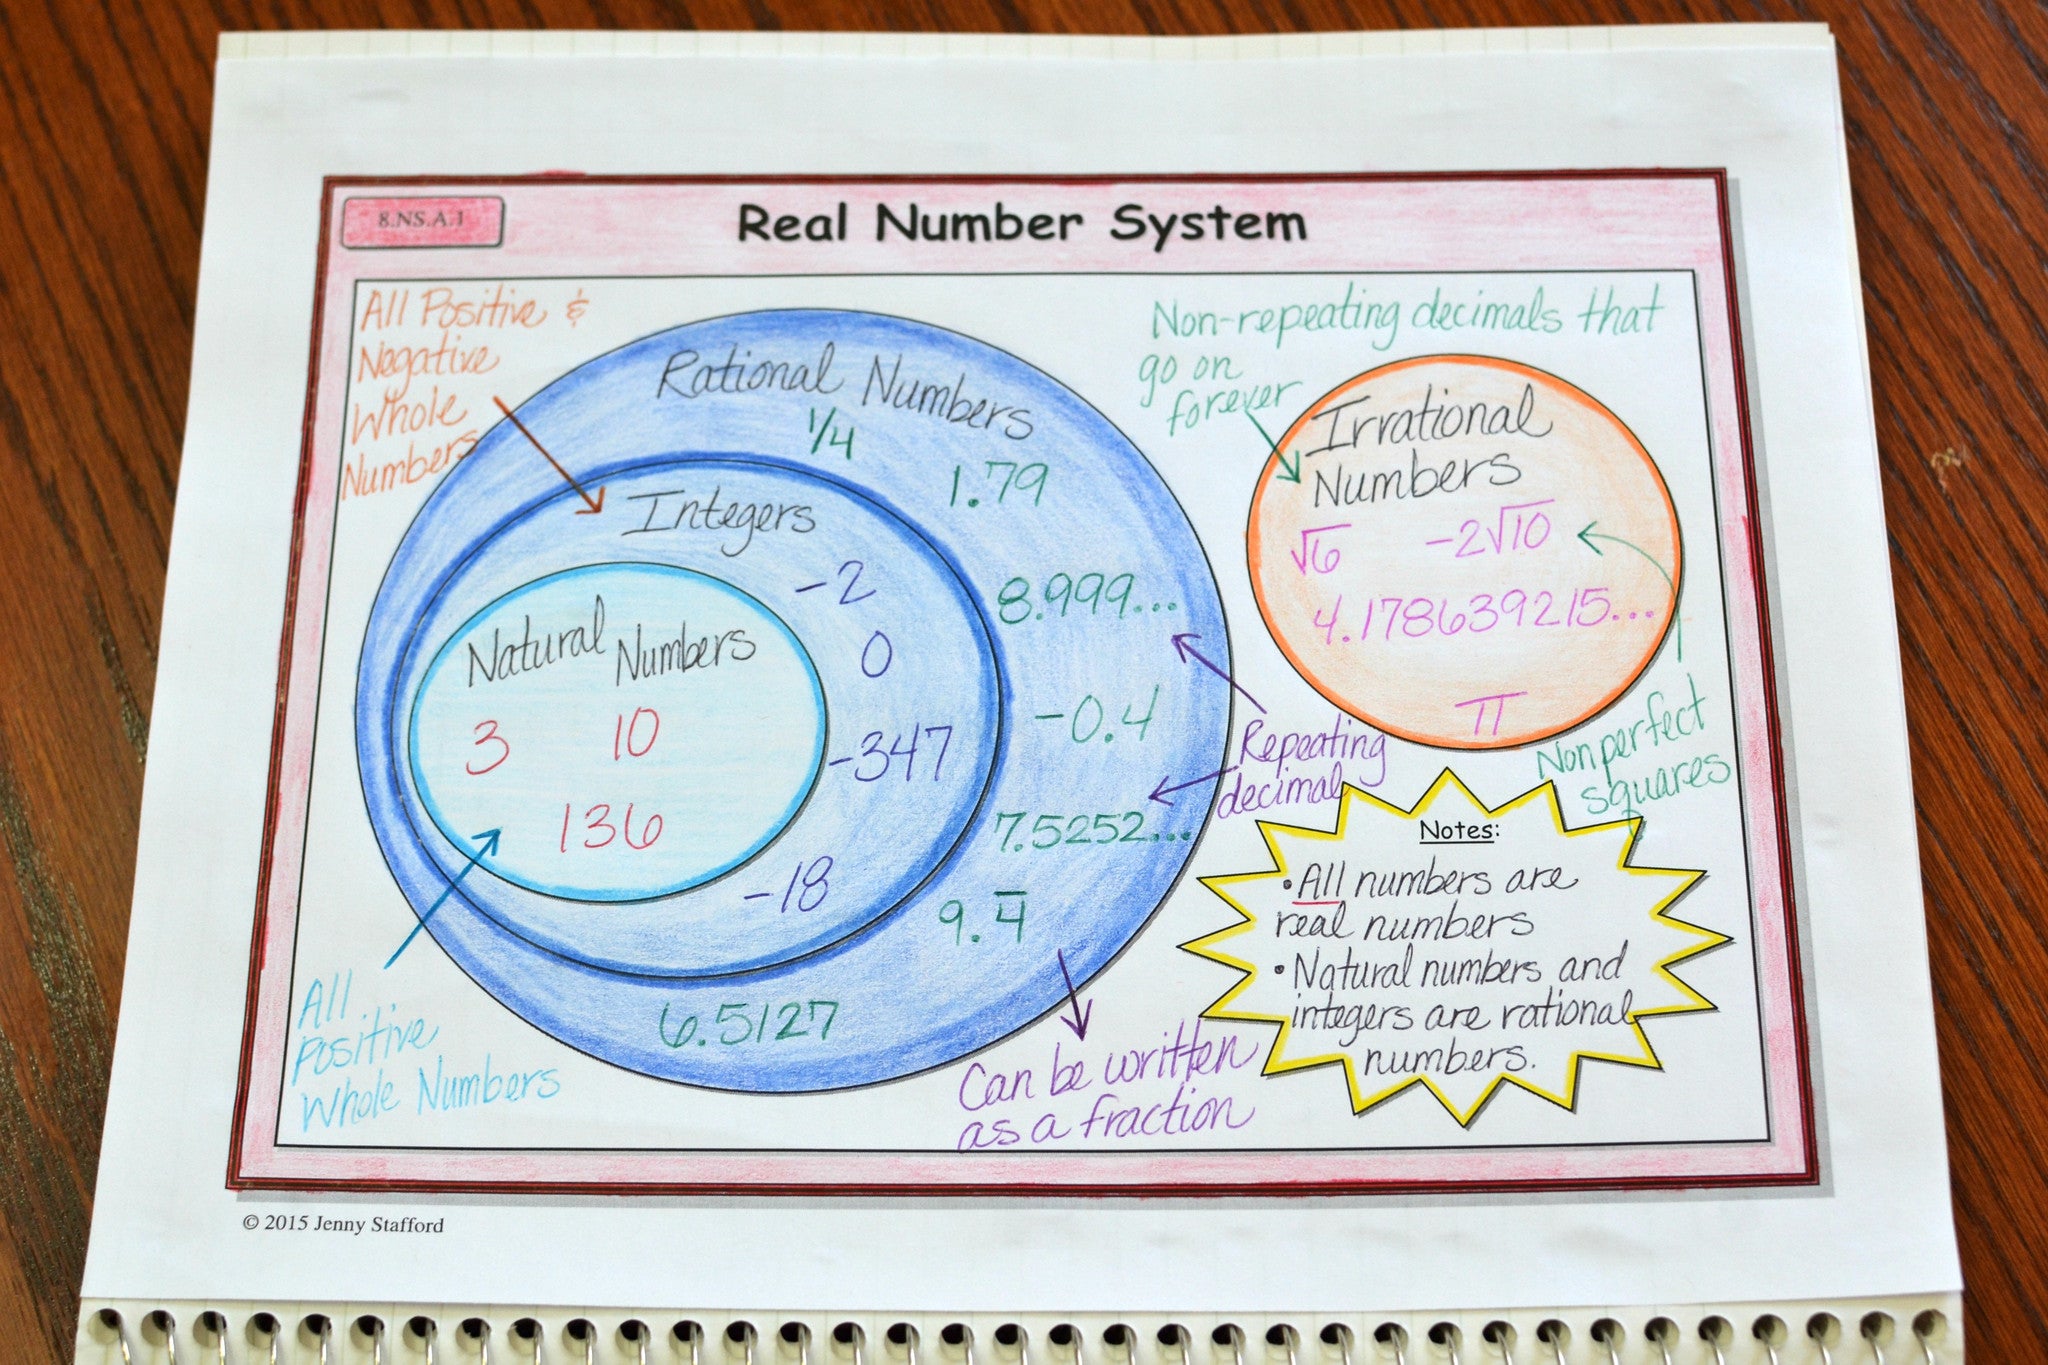 8.NS.A.1
Real Number System
All Positive &
Negative
Whole
Numbers
Rational Numbers
1/4
1.79
8.999...
-0.4
7.5252...
9.4̅
6.5127
Integers
-2
0
-347
-18
Natural Numbers
3 10
136
All
Positive
Whole Numbers
Repeating
decimal
Can be written
as a fraction
Non-repeating decimals that
go on
forever
Irrational
Numbers
√6 -2√10
4.178639215...
π
Nonperfect
squares
Notes:
•All numbers are
real numbers
•Natural numbers and
integers are rational
numbers.
© 2015 Jenny Stafford